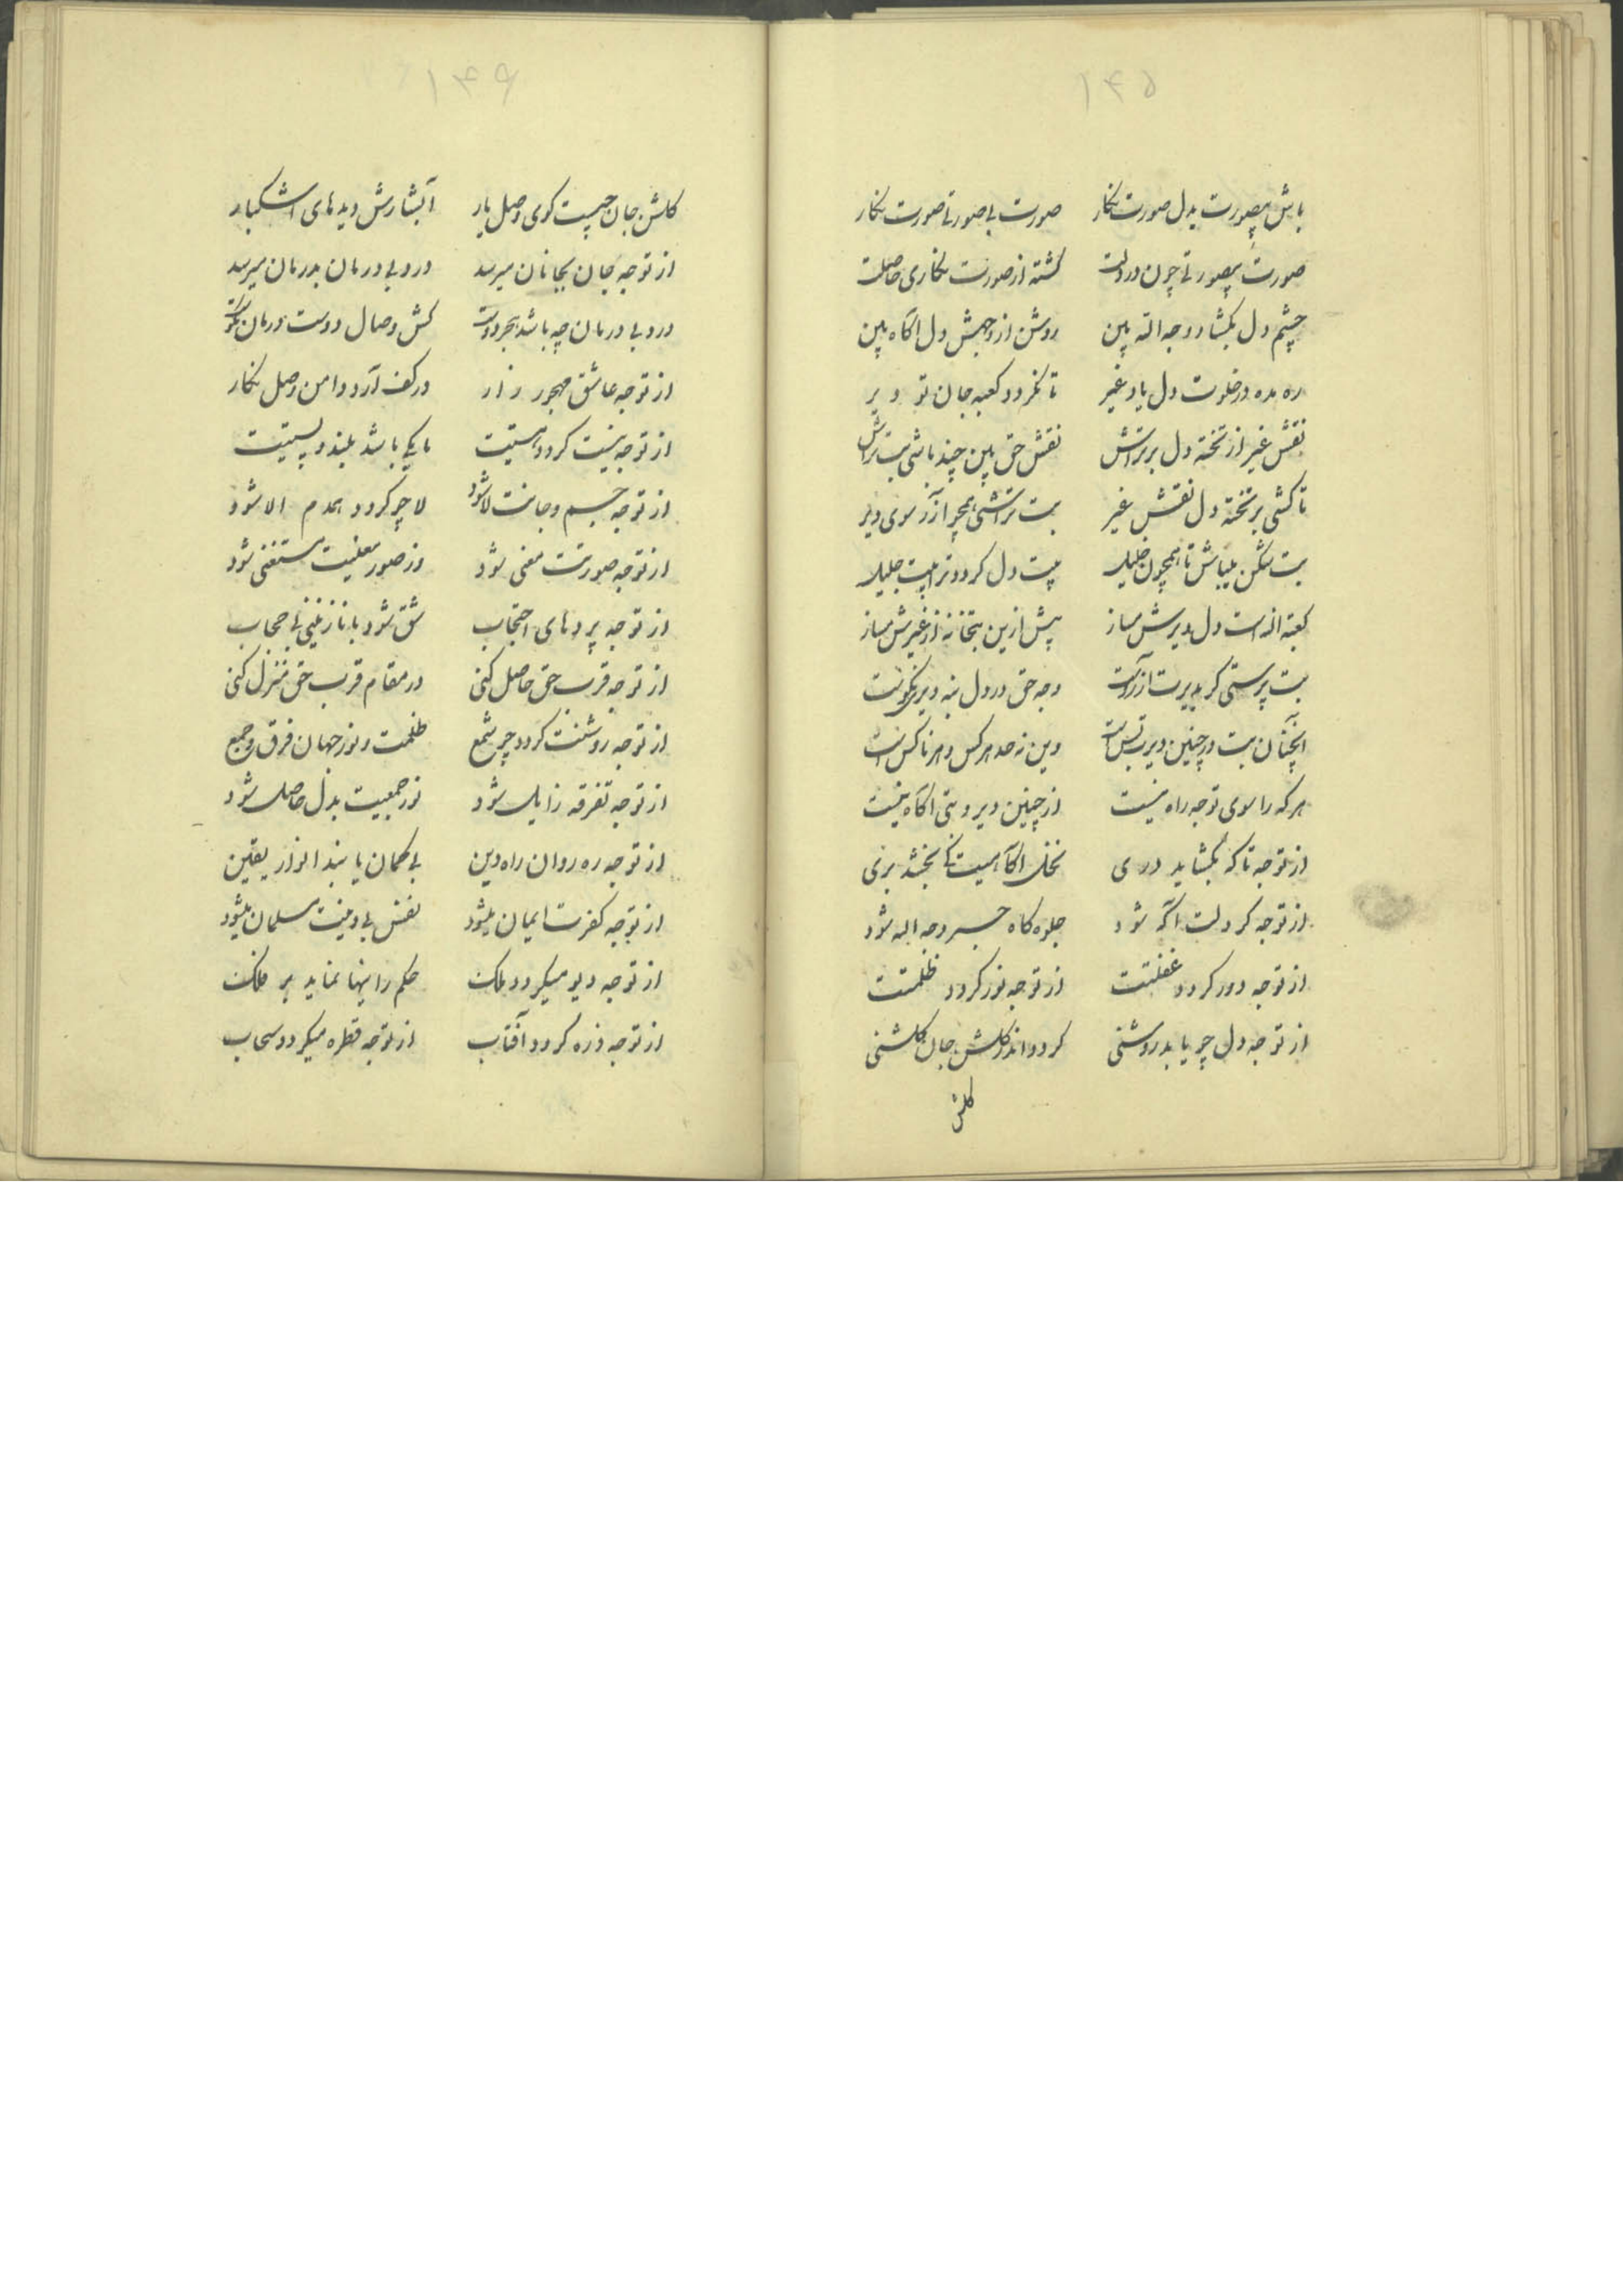 ۱۴۵
باش بیصورت بدل صورت نگار صورت بی صورتی صورت نگار
صورت بیصورتی چون در دلت گشته از صورت نگاری حاصلت
چشم دل بگشا و وجه الله ببین روشن از وجهش دل آگاه ببین
ره مده در خلوت دل یاد غیر تا نگردد کعبه جان تو دیر
نقش غیر از تخته دل برتراش نقش حق ببین چند باشی بت تراش
تا کشی بر تخته دل نقش غیر بت تراشی همچو آزر سوی دیر
بت شکن میباش تا همچون خلیل بیت دل گردد ترا بیت جلیل
کعبه الله است دل دیرش مساز بیش ازین بتخانه از غیرش مساز
بت پرستی کر بدیرت آزر است وجه حق در دل بنه دیری نکوست
آنچنان بت در چنین دیرت بس است وین نه حد هر کس و هر ناکس است
هر که را سوی توجه راه نیست از چنین دیر و بتی آگاه نیست
از توجه تا که بگشاید دری نخل آگاهیت کی بخشد بری
از توجه گر دلت آگه شود جلوه گاه حسن وجه الله شود
از توجه دور گردد غفلتت از توجه نور گردد ظلمتت
از توجه دل چو یابد روشنی گردد اندر گلشن جان گلشنی
گلشن
۱۴۶
گلشن جان چیست کوی وصل یار آبشارش دیدهای اشکبار
از توجه جان بجانان میرسد درد بی درمان بدرمان میرسد
درد بی درمان چه باشد هجر دوست کش وصال دوست درمان نکوست
از توجه عاشق مهجور زار در کف آرد دامن وصل نگار
از توجه نیست گردد هستیت تا یکی باشد بلند و پستیت
از توجه جسم و جانت لا شود لا چو گردد همدم الا شود
از توجه صورتت معنی شود وز صور معنیت مستغنی شود
از توجه پردهای احتجاب شق شود با نازنینی بی حجاب
از توجه قرب حق حاصل کنی در مقام قرب حق منزل کنی
از توجه روشنت گردد چو شمع ظلمت و نور جهان فرق و جمع
از توجه تفرقه زایل شود نور جمعیت بدل حاصل شود
از توجه ره روان راه دین بی گمان یابند انوار یقین
از توجه کفرت ایمان میشود نفس بی دینت مسلمان میشود
از توجه دیو میگردد ملک حکم رانیها نماید بر فلک
از توجه ذره گردد آفتاب از توجه قطره میگردد سحاب